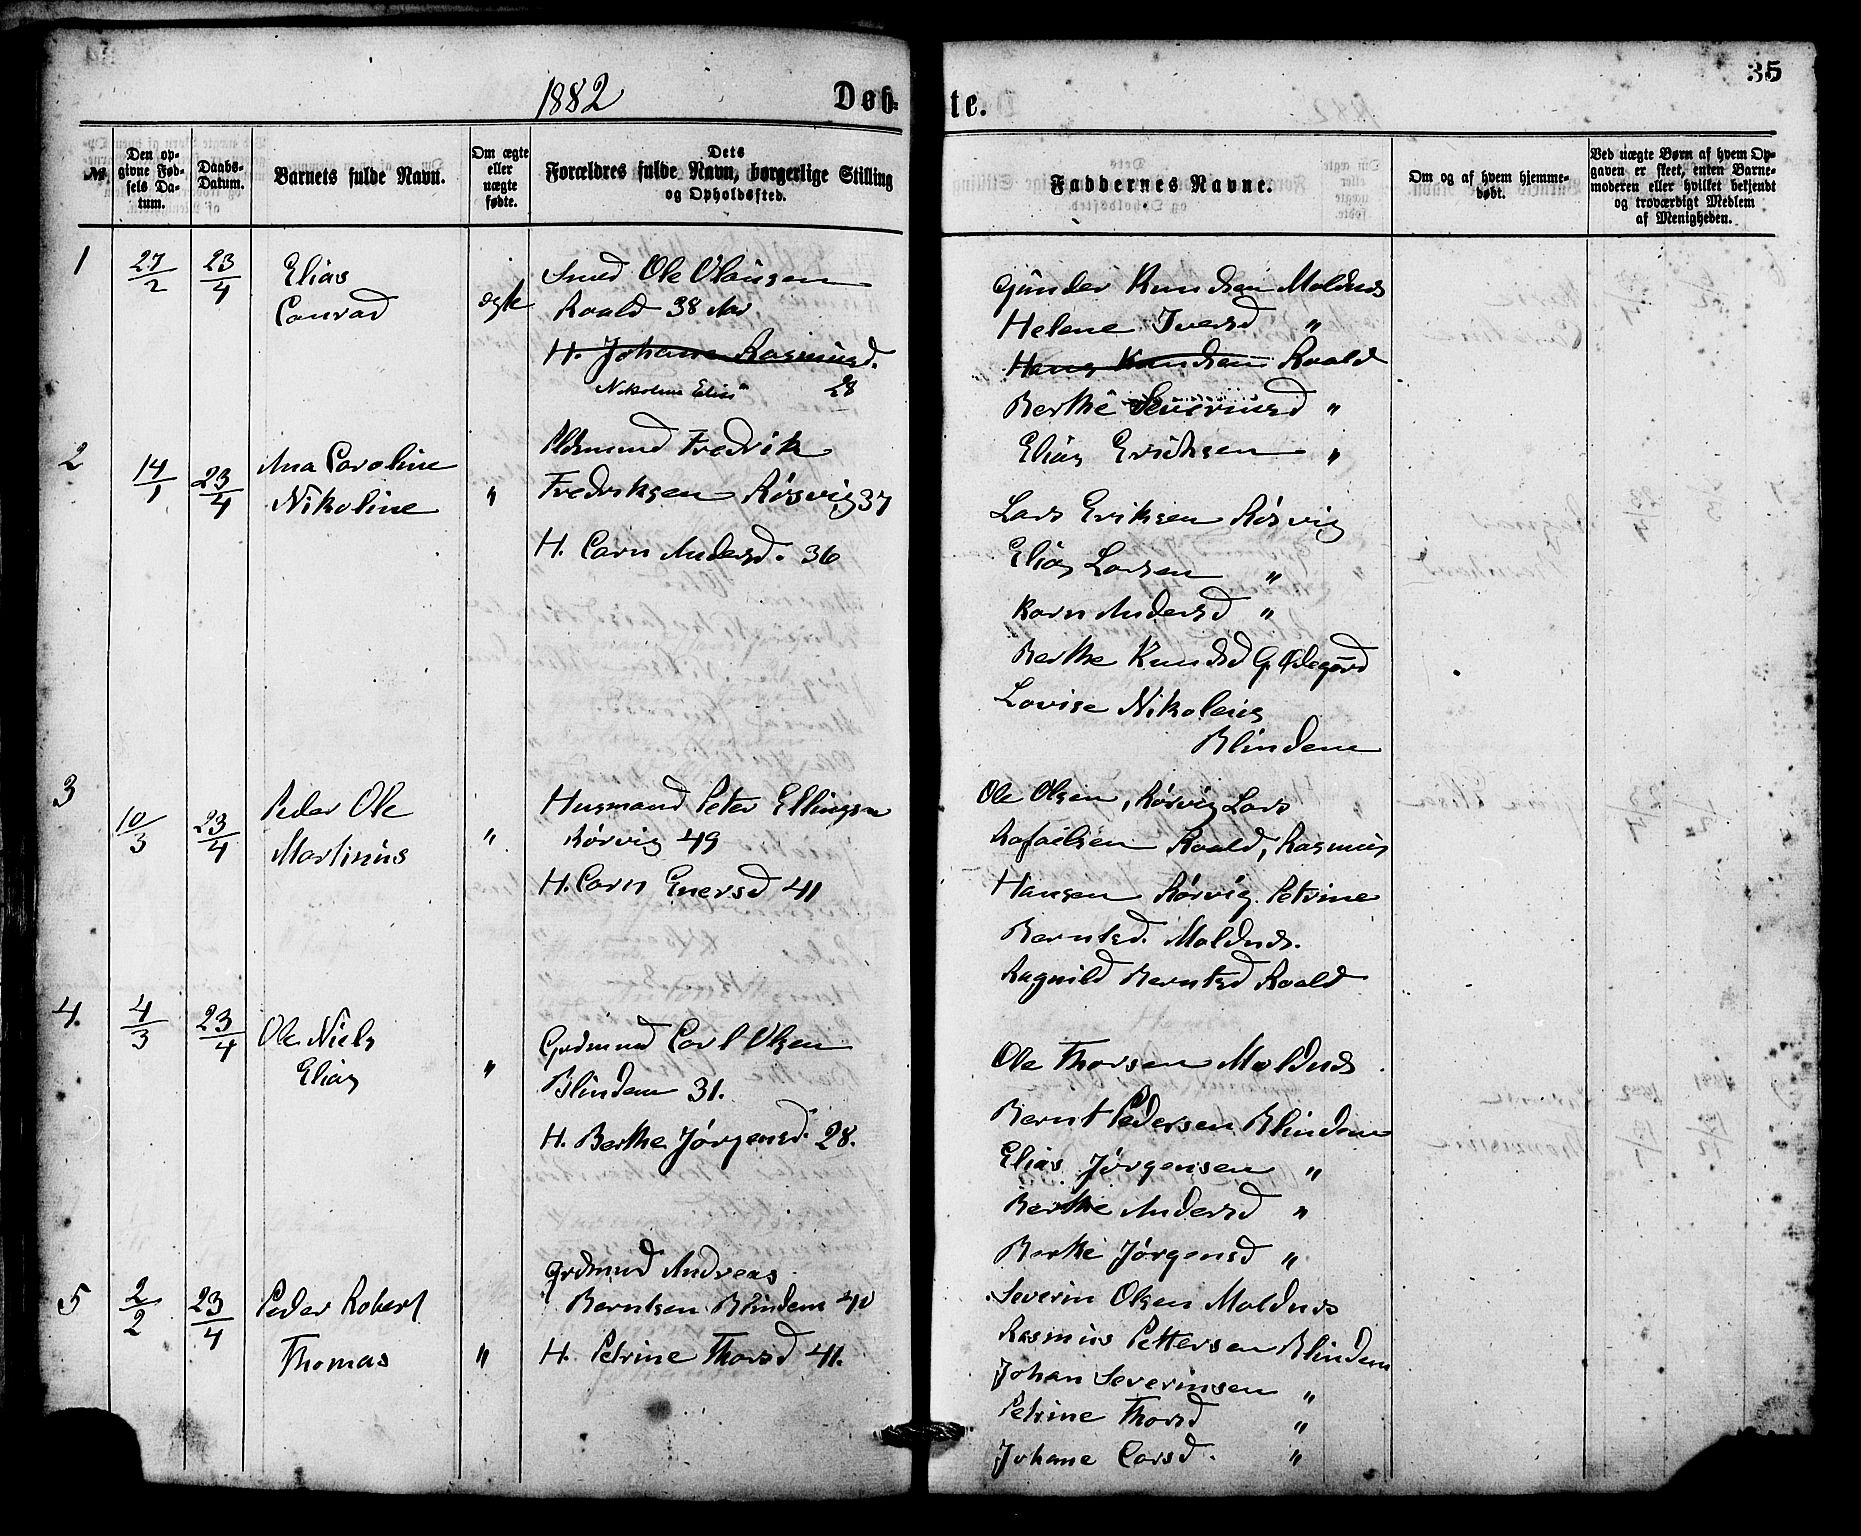 1882
Døb-
te.
35
№
Den op-
givne Fød-
sels Da-
tum.
Daabs-
Datum.
Barnets fulde Navn.
Om ægte
eller
uægte
fødte.
Dets
Forældres fulde Navn, borgerlige Stilling
og Opholdssted.
Faddernes Navne.
Om og af hvem hjemme-
døbt.
Ved uægte Børn af hvem Op-
gaven er skeet, enten Barne-
moderen eller hvilket bekjendt
og troværdigt Medlem
af Menigheden.
1
27/2
23/4
Elias
Conrad
ægte
Smed Ole Olausen
Roald 38 Aar
H. Johane Rasmusd.
28
Gunder Knudsen Moldnes
Helene Iversd "
Hans Knudsen Roald
Berthe Severinsd "
Elias Eriksen "
2
14/1
23/4
Ana Caroline
Nikoline
"
Fredrik
Fredriksen Rørvig 37
H. Carn Andersd. 36
Lars Eriksen Rørvig
Elias Larsen "
Karn Andersd "
Berthe Knudsd G. Ødegård
Lovise Nikolaus
Blindem
3
10/3
23/4
Peder Ole
Martinus
"
Husmand Peter Ellingsen
Rørvig 49
H. Carn Enersd 41
Ole Olsen, Rørvig Lars
Rafaelsen Roald, Rasmus
Hansen Rørvig. Petrine
Berntsd. Moldnes.
Ragnild Berntsd Roald
4.
4/3
23/4
Ole Niels
Elias
"
Grdmand Carl Olsen
Blindem 31.
H. Berthe Jørgensd. 28.
Ole Thorsen Moldnes
Bernt Pedersen Blindem
Elias Jørgensen "
Berthe Andersd "
Berthe Jørgensd "
5
2/2
23/4
Peder Robert
Thomas
"
grdmand Andreas
Berntsen Blindem 40
H. Petrine Thorsd 41.
Severin Olsen Moldnes
Rasmus Pettersen Blindem
Johan Severinsen "
Petrine Thorsd "
Johane Larsd. "